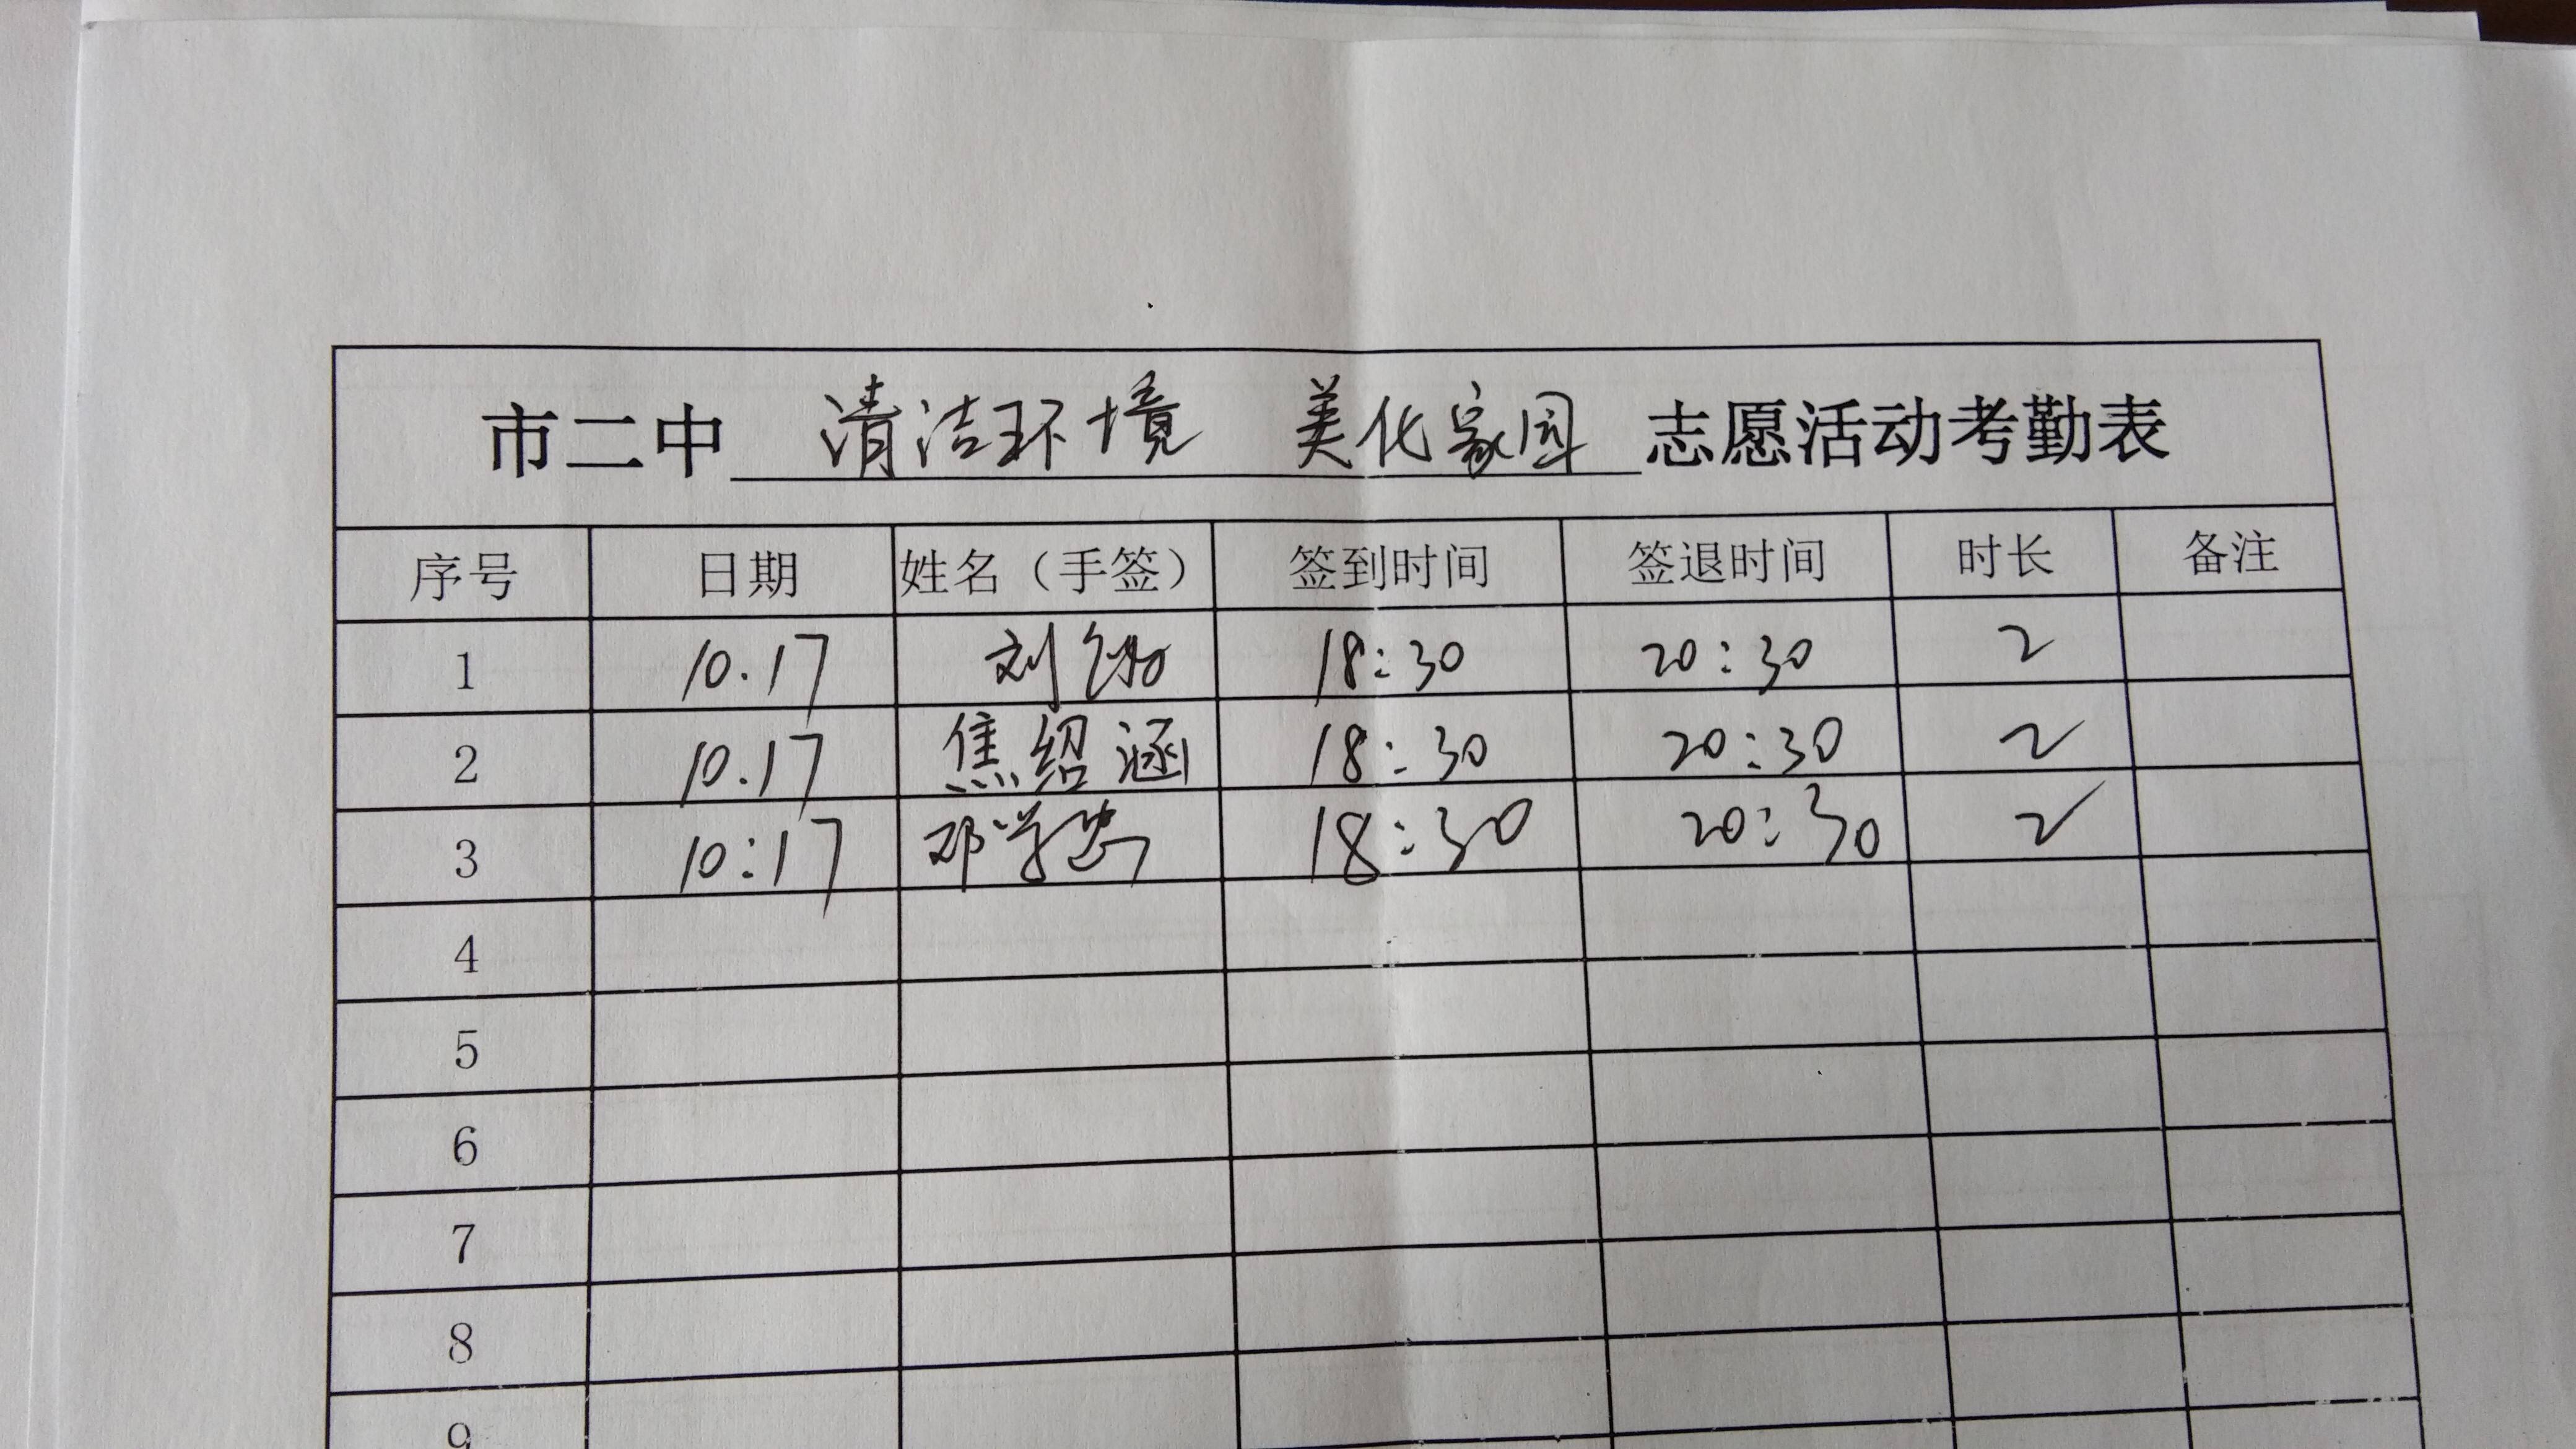 市二中 清洁环境 美化家园 志愿活动考勤表
序号 日期 姓名（手签） 签到时间 签退时间 时长 备注
1 10.17 刘 18:30 20:30 2
2 10.17 焦绍涵 18:30 20:30 2
3 10:17 邓学 18:30 20:30 2
4
5
6
7
8
9